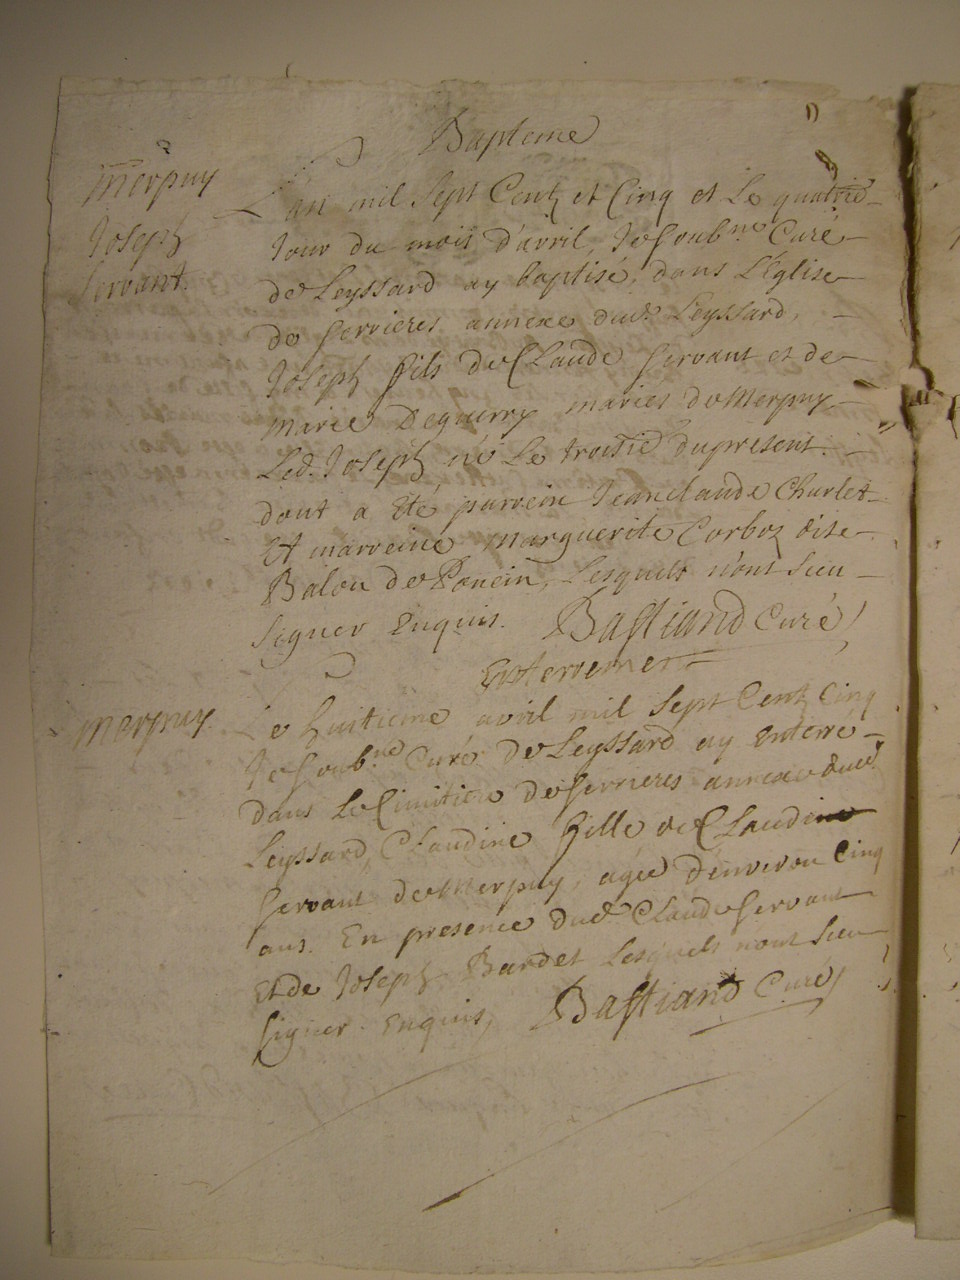 Bapteme
Merpuy
Joseph
Servant.
L'an mil sept Centz et Cinq et Le quatrie
Jour du mois d'avril Je Soub.né Curé
de Leyssard ay baptisé, dans L'Eglise
de Serrieres annexe dud. Leyssard,
Joseph fils de Claude Servant et de
marie Degourry mariés de Merpuy
Led. Joseph né Le troisie du present.
dont a Eté parrein Jeanclaude Charlet
Et marreine marguerite Corboz dite
Balou de Poncin, Lesquels n'ont Sceu
Signer Enquis. Bastiand Curé
Enterrement
Merpuy.
Le huitieme avril mil Sept Centz Cinq
Je Soub.né Curé de Leyssard ay Enterré
dans Le Cimitiere de Serrieres annexe dud.
Leyssard, Claudine fille de Claudine
Servant de Merpuy, agée d'environ Cinq
ans. En presence dud. Claude Servant
Et de Joseph Bandet Lesquels n'ont Sceu
Signer Enquis, Bastiand Curé